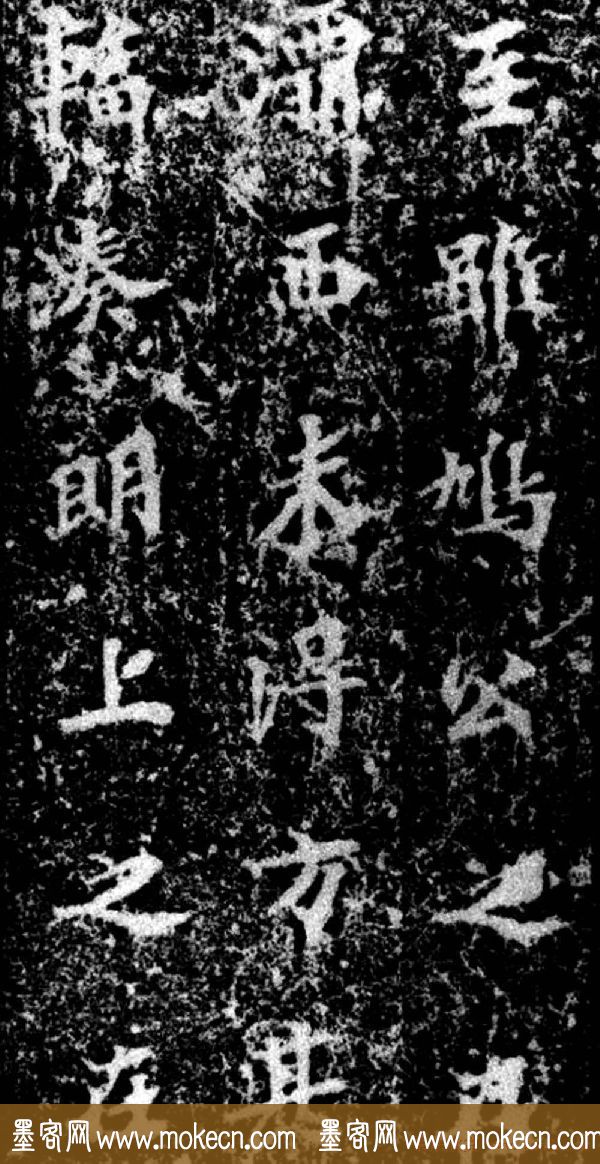 至雖鳩公之
而未得方其
輻湊明上之在
墨客网 www.mokecn.com 墨客网 www.mokecn.com